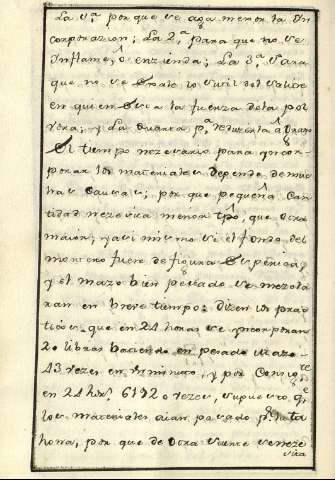 La 1ª porque se aga menor la In
corporazion; La 2ª para que no se
Inflame, ô enzienda; La 3ª para
que no se Exale lo sutil del salitre
en quien Esta la fuerza dela pol
vora; y La quarta pª reducirla â grano
El tiempo nezesario para yncor
porar los materiales depende de mu
has causas; por que pequeña Can
tidad nezesita menor tpô, que otra
maior; y asi mismo si el fondo del
mortero fuere de figura Espherica,
y el mazo bien pesado se mezcla
ran en breve tiempo: dizen los prac
ticos, que en 24 horas se yncorporan
20 libras haciendo en pesado Mazo
43 vezes en un minuto, y por Consigte
en 24 hors 61920 vezes, supuesto q̃
los materiales aian pasado pr la ta
hona, por que de otra suerte se neze
sita